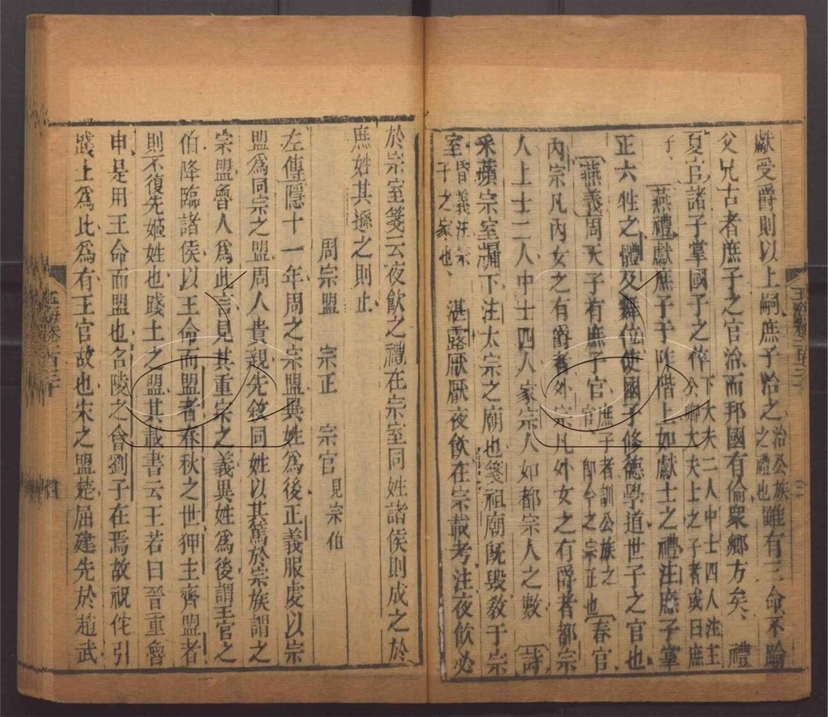 獻受爵則以上嗣庶子治之治公族之禮也雖有三命不踰
父兄古者庶子之官治而邦國有倫衆鄉方矣禮
夏官諸子掌國子之倅下大夫二人中士四人注主公卿大夫士之子者或曰庶
子燕禮獻庶子于阼階上如獻士之禮注庶子掌
正六牲之體及舞位使國子修德學道世子之官也
燕義周天子有庶子官庶子者訓公族之官卽今之宗正也春官
內宗凡內女之有爵者外宗凡外女之有爵者都宗
人上士二人中士四人家宗人如都宗人之數詩
采蘋宗室牖下注大宗之廟也箋祖廟旣毀敎于宗
室昏義注宗子之家也湛露厭厭夜飲在宗載考注夜飲必
於宗室箋云夜飲之禮在宗室同姓諸侯則成之於
庶姓其讓之則止
周宗盟 宗正 宗官見宗伯
左傳隱十一年周之宗盟異姓爲後正義服虔以宗
盟爲同宗之盟周人貴親先敘同姓以其篤於宗族謂之
宗盟魯人爲此言見其重宗之義異姓爲後謂王官之
伯降臨諸侯以王命而盟者春秋之世狎主齊盟者
則不復先姬姓也踐土之盟其載書云王若曰晉重魯
申是用王命而盟也召陵之會劉子在焉故祝佗引
踐土爲比爲有王官故也宋之盟楚屈建先於趙武